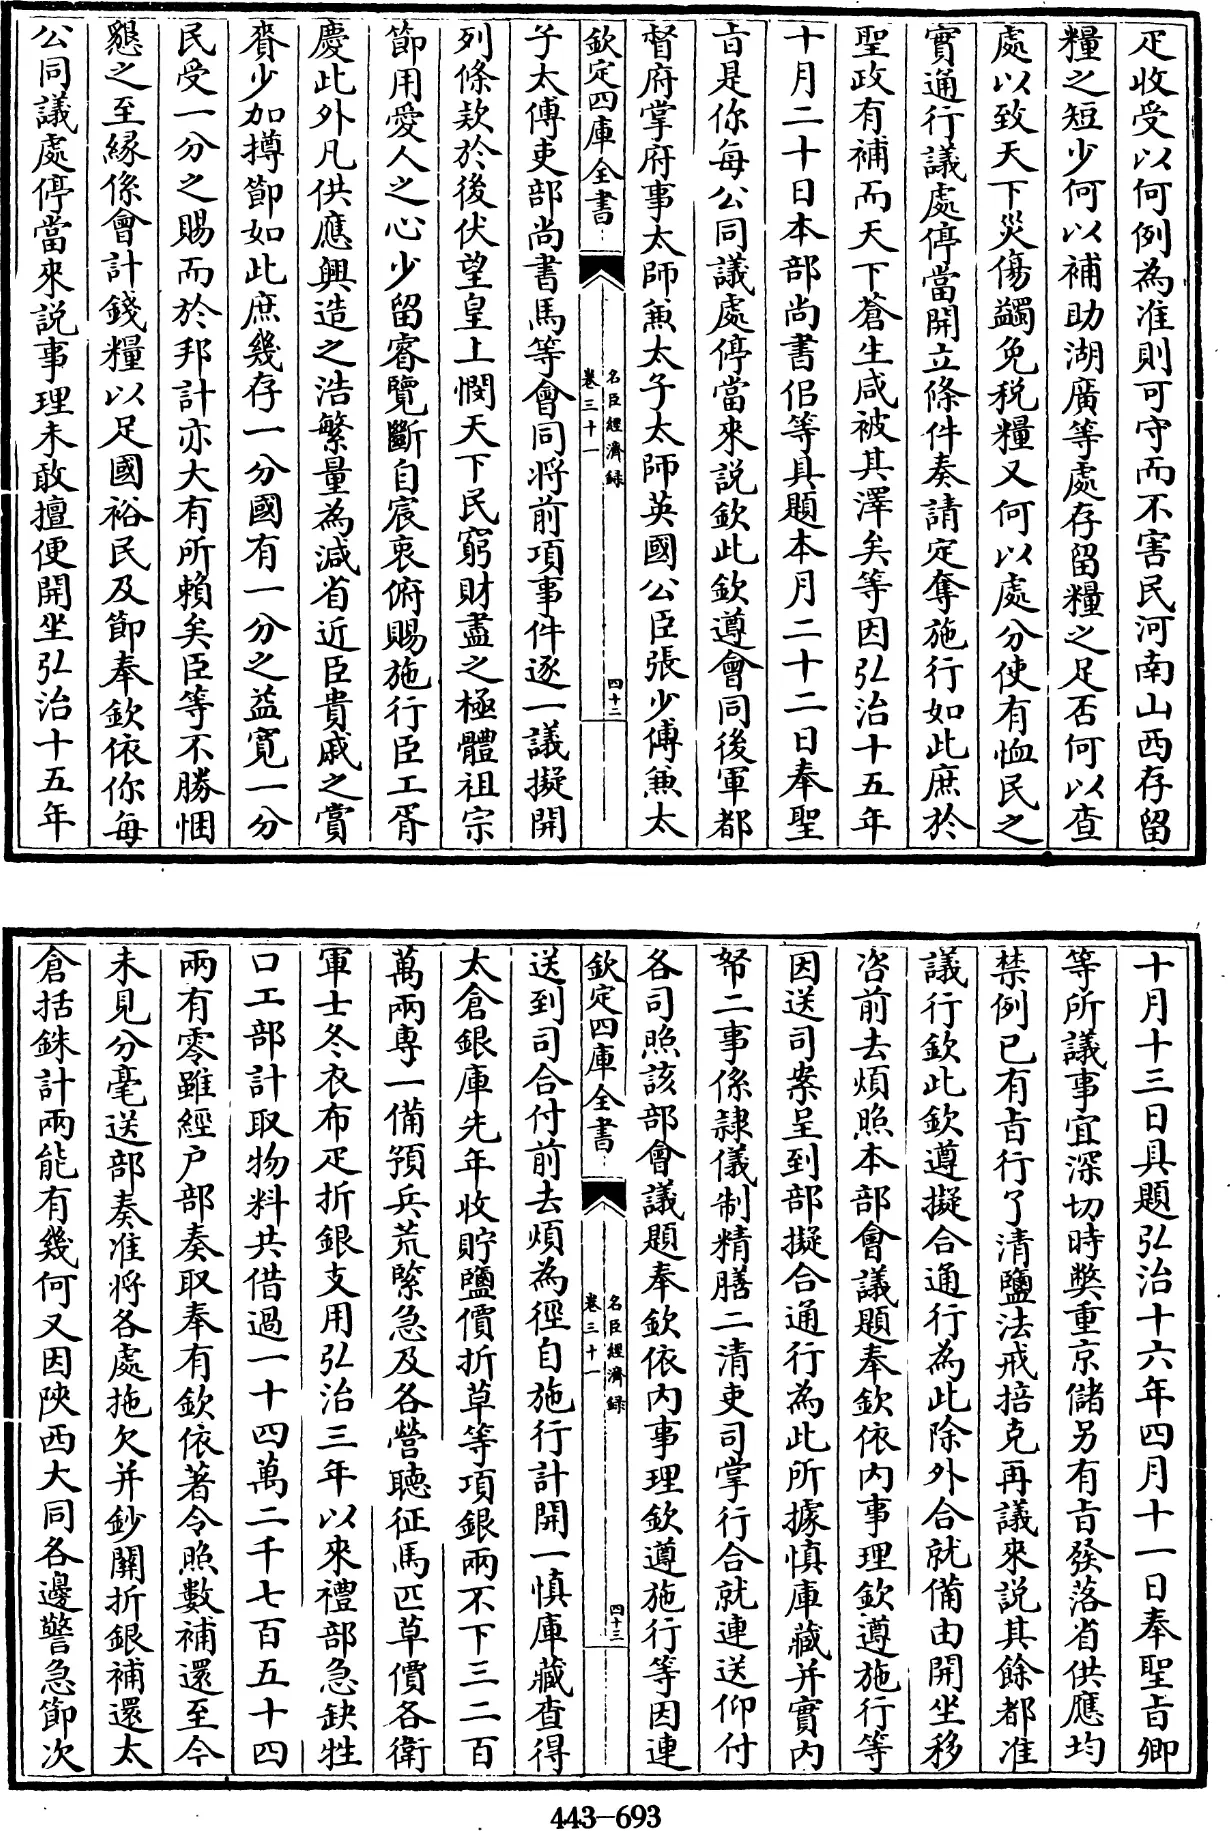 疋收受以何例為准則可守而不害民河南山西存留
糧之短少何以補助湖廣等處存留糧之足否何以查
處以致天下災傷蠲免税糧又何以處分使有恤民之
實通行議處停當開立條件奏請定奪施行如此庶於
聖政有補而天下蒼生咸被其澤矣等因弘治十五年
十月二十日本部尚書佀等具題本月二十二日奉聖
旨是你每公同議處停當來説欽此欽遵會同後軍都
督府掌府事太師兼太子太師英國公臣張少傅兼太
欽定四庫全書
名臣經濟録
卷三十一
四十二
子太傅吏部尚書馬等會同將前項事件逐一議擬開
列條款於後伏望皇上憫天下民窮財盡之極體祖宗
節用愛人之心少留睿覽斷自宸衷俯賜施行臣工胥
慶此外凡供應興造之浩繁量為減省近臣貴戚之賞
賚少加撙節如此庶幾存一分國有一分之益寛一分
民受一分之賜而於邦計亦大有所賴矣臣等不勝悃
懇之至縁係會計錢糧以足國裕民及節奉欽依你每
公同議處停當來説事理未敢擅便開坐弘治十五年
十月十三日具題弘治十六年四月十一日奉聖旨卿
等所議事宜深切時獘重京儲另有旨發落省供應均
禁例已有旨行了清鹽法戒掊克再議來説其餘都准
議行欽此欽遵擬合通行為此除外合就備由開坐移
咨前去煩照本部會議題奉欽依内事理欽遵施行等
因送司案呈到部擬合通行為此所據慎庫藏并實内
帑二事係隷儀制精膳二清吏司掌行合就連送仰付
各司照該部會議題奉欽依内事理欽遵施行等因連
欽定四庫全書
名臣經濟録
卷三十一
四十三
送到司合付前去煩為徑自施行計開一慎庫藏查得
太倉銀庫先年收貯鹽價折草等項銀兩不下三二百
萬兩専一備預兵荒緊急及各營聴征馬匹草價各衛
軍士冬衣布疋折銀支用弘治三年以來禮部急缺牲
口工部計取物料共借過一十四萬二千七百五十四
兩有零雖經户部奏取奉有欽依著令照數補還至今
未見分毫送部奏准將各處拖欠并鈔關折銀補還太
倉括銖計兩能有幾何又因陜西大同各邊警急節次
443-693